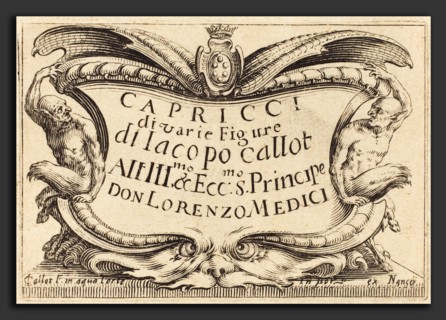 CAPRICCI
di varie Figure
di Iacopo Callot
All Ill.mo & Ecc.mo S. Principe
DON LORENZO MEDICI
Callot F. in aqua forte ex Nancy